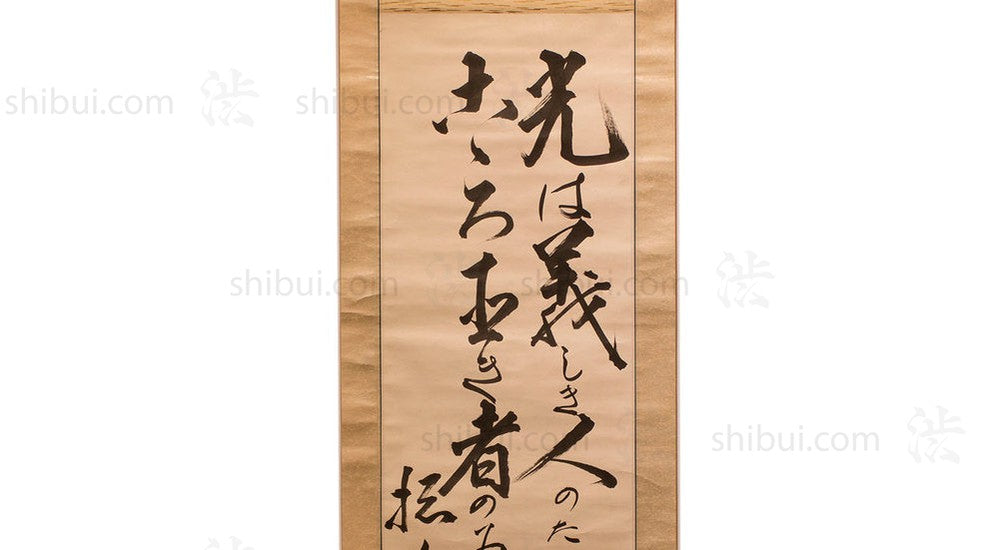 光は義しき人のた
こゝろ直き者の
shibui.com 渋
shibui.com
shibui.com
shibui.com 渋
shibui.com
shibui.com 渋